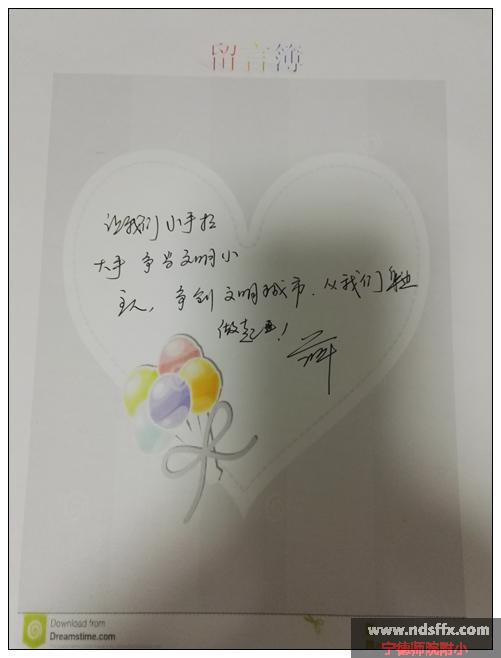 留言簿
让我们小手拉
大手 争当文明小
主人，争创文明城市，从我们身边
做起！
Download from
Dreamstime.com
www.ndsffx.com
宁德师院附小